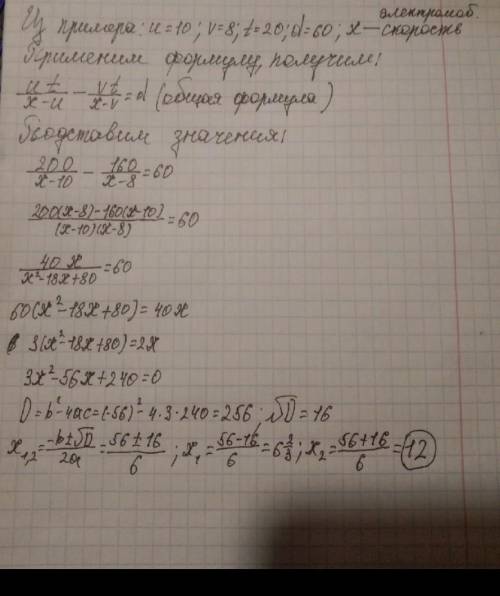 Из примера: u=10; v=8; t=20; d=60; x — электромоб. скорость
Применим формулу, получим:
ut/x-u - vt/x-v = d (общая формула)
Подставим значения:
200/x-10 - 160/x-8 = 60
200(x-8)-160(x-10)/(x-10)(x-8) = 60
40x/x²-18x+80 = 60
60(x²-18x+80)=40x
3(x²-18x+80)=2x
3x²-56x+240=0
D=b²-4ac=(-56)² 4·3·240=256; √D=16
x₁,₂=-b±√D/2a=56±16/6; x₁=56-16/6=6 2/3; x₂=56+16/6=12